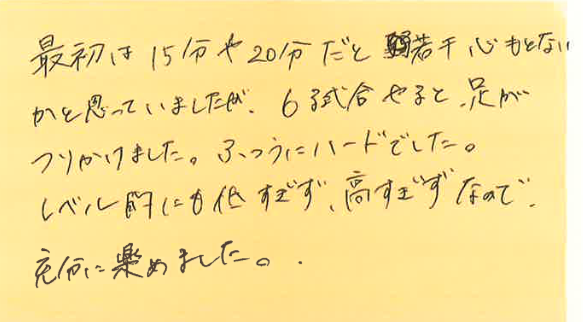 最初は15分や20分だと若干心もとない
かと思っていましたが、6試合やると、足が
つりかけました。ふつうにハードでした。
レベル的にも低すぎず、高すぎずなので、
充分に楽めました。